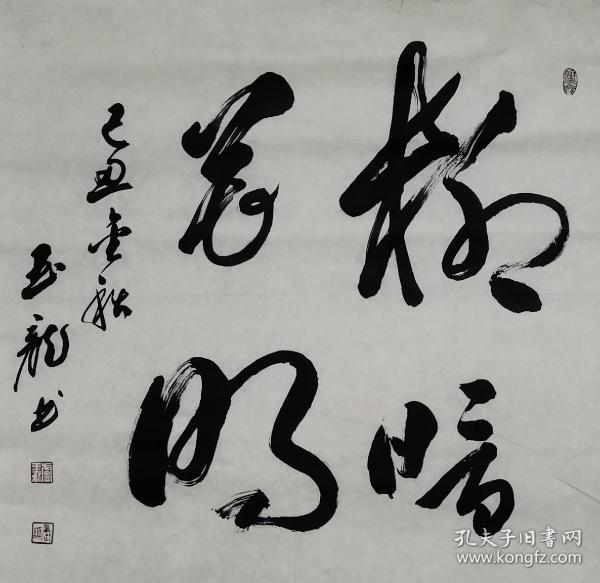 柳暗
花明
己丑金秋
玉龍书
孔夫子旧书网
www.kongfz.com